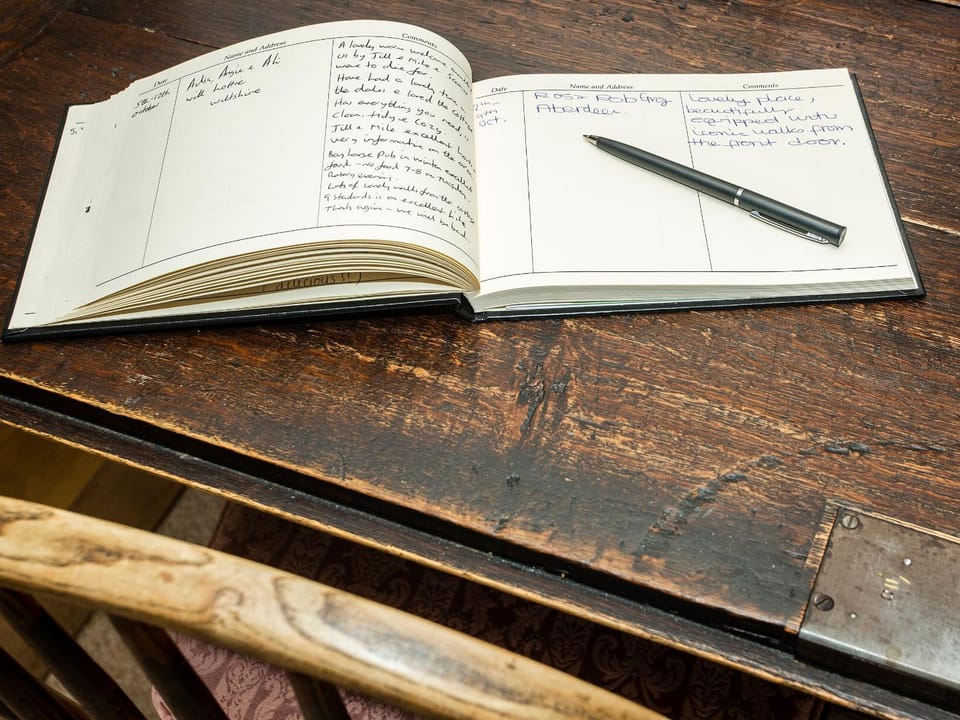 Date Name and Address Comments
5th-12th
October
Angie & Ali
with Lottie
Wiltshire
A lovely warm welcome
us by Jill & Mike & scones
were to die for.
Have had a lovely time,
the dales & loved the cottage
Has everything you need, is
clean, tidy & cozy.
Jill & Mike excellent hosts
very informative on the
Bay Horse Pub in Winton excellent
food - no food 7-8 on Tuesday
evening.
Lots of lovely walks from the cottage
9 standards is an excellent hike
Thanks again - we will be back.
delicious!!
Date Name and Address Comments
Oct.
Ross Rob Grg
Aberdeen.
Lovely place,
beautifully
equipped with
iconic walks from
the front door.